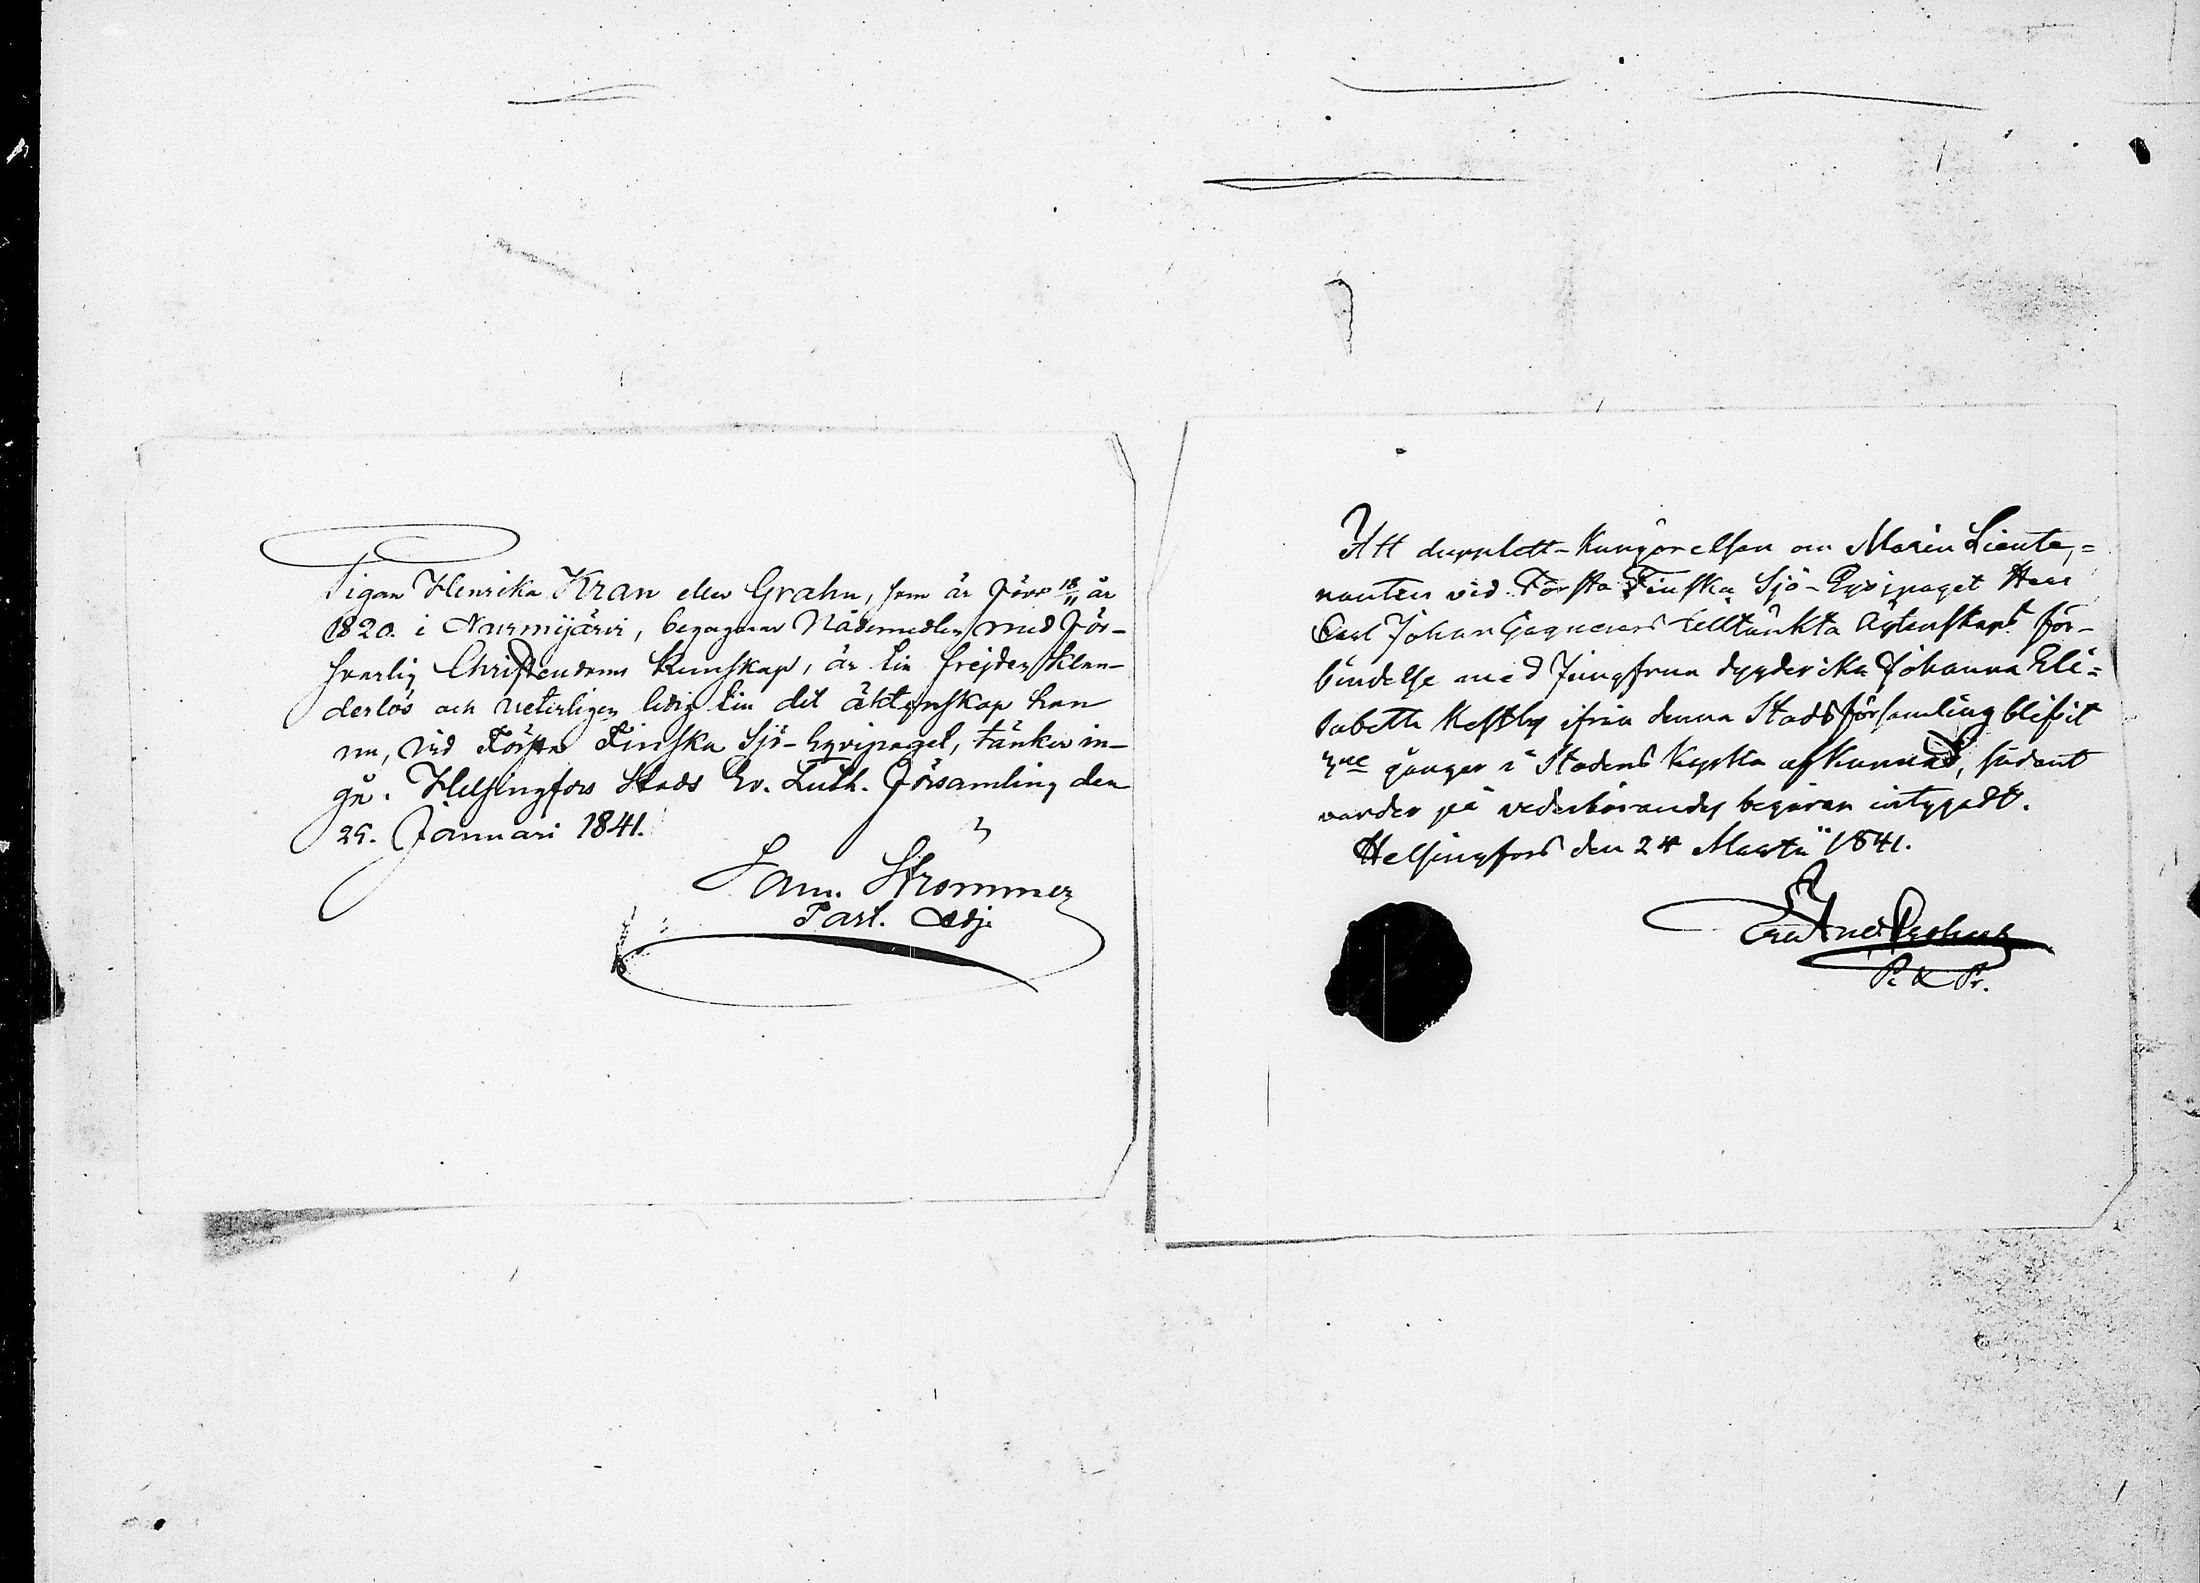 Pigan Henrika Kran eller Grahn, som är född 18/11 år
1820. i Nurmijärvi, begagnar Nådemedlen med för-
svarlig Christendoms kunskap, är till frejden klan-
derlös och veterligen ledig till det äktenskap hon
nu, vid Första Finska Sjö-Eqvipaget, tänker in-
gå. Helsingfors Stads Ev. Luth. Församling den
29. Januari 1841.
Sam. Strömmer
Past. Adj:
Att dupplett-kungörelsen om Marin Lieute,=
nanten vid Första Finska Sjö-Eqvipaget Herr
Carl Johan tilltänkta Äktenskaps för-
bindelse med Jungfrun dygderika Johanna Eli=
sabeth ifrån denna Stadsförsamling blifvit
3ne gånger i Stadens Kyrka afkunnad, sådant
varder på vederbörandes begäran intygadt.
Helsingfors den 24 Martii 1841.
And.
P. & Pr.